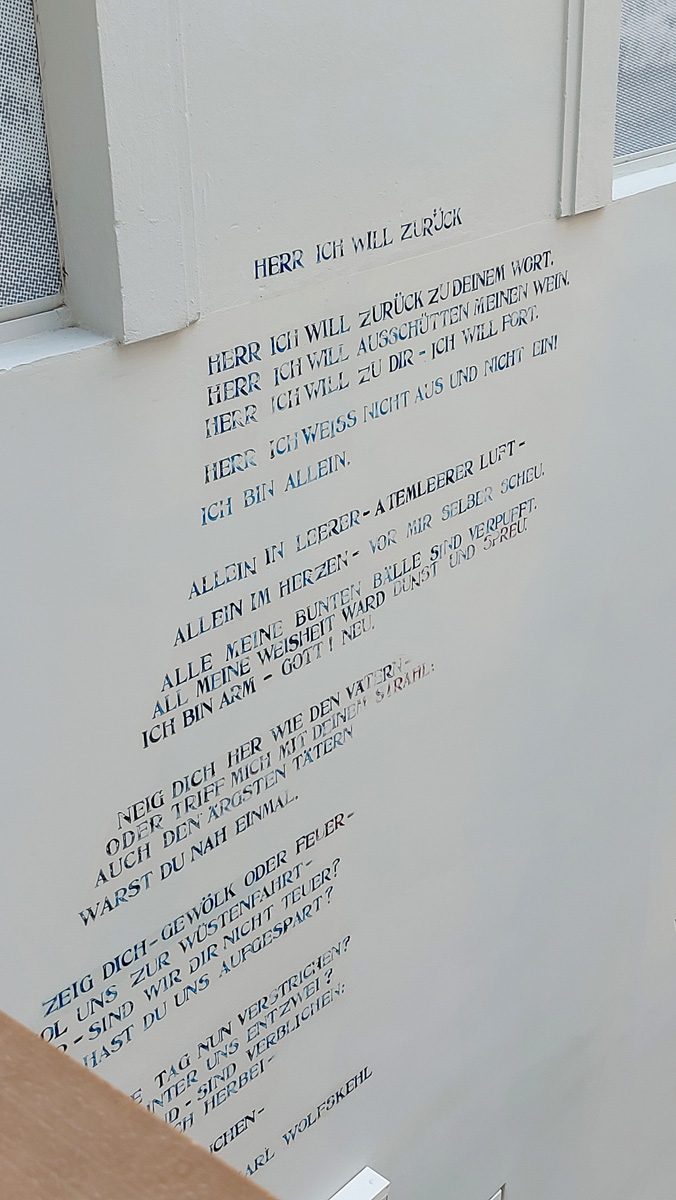 HERR ICH WILL ZURÜCK
HERR ICH WILL ZURÜCK ZU DEINEM WORT.
HERR ICH WILL AUSSCHÜTTEN MEINEN WEIN.
HERR ICH WILL ZU DIR - ICH WILL FORT.
HERR ICH WEISS NICHT AUS UND NICHT EIN!
ICH BIN ALLEIN.
ALLEIN IN LEERER - ATEMLEERER LUFT -
ALLEIN IM HERZEN - VOR MIR SELBER SCHEU.
ALLE MEINE BUNTEN BÄLLE SIND VERPUFFT.
ALL MEINE WEISHEIT WARD DUNST UND SPREU.
ICH BIN ARM - GOTT! NEU.
NEIG DICH HER WIE DEN VÄTERN -
ODER TRIFF MICH MIT DEINEM STRAHL:
AUCH DEN ÄRGSTEN TÄTERN
WARST DU NAH EINMAL.
ZEIG DICH - GEWÖLK ODER FEUER -
OL UNS ZUR WÜSTENFAHRT -
- SIND WIR DIR NICHT TEUER?
HAST DU UNS AUFGESPART?
E TAG NUN VERSTRICHEN?
UNS ENTZWEI?
D - SIND VERBLICHEN:
CH HERBEI -
ICHEN -
ARL WOLFSKEHL